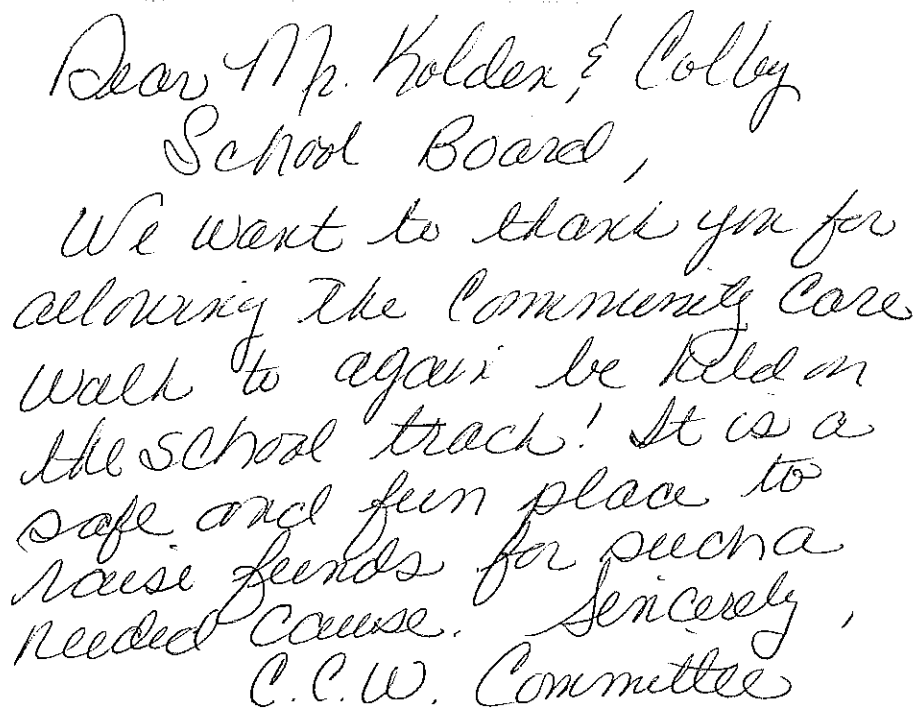 Dear Mr. Kolden & Colby
School Board,
We want to thank you for
allowing the Community Care
Walk to again be held on
the school track! It is a
safe and fun place to
raise funds for such a
needed cause. Sincerely,
C.C.W. Committee